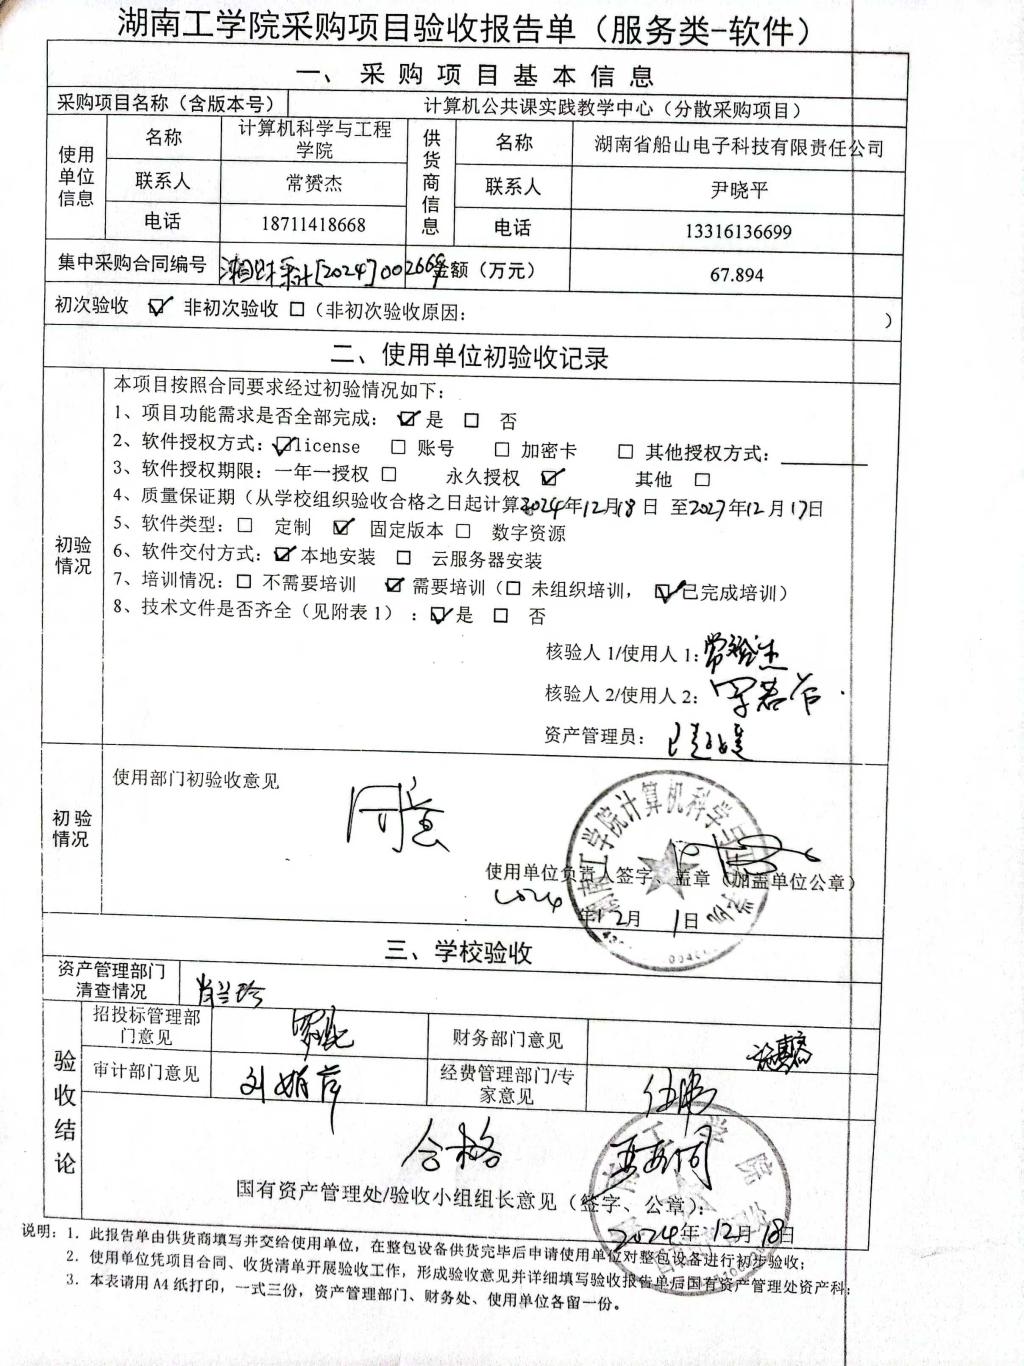 湖南工学院采购项目验收报告单（服务类-软件）
一、采购项目基本信息
采购项目名称（含版本号） 计算机公共课实践教学中心（分散采购项目）
使用单位信息 名称 计算机科学与工程学院 供货商信息 名称 湖南省船山电子科技有限责任公司
联系人 常赟杰 联系人 尹晓平
电话 18711418668 电话 13316136699
集中采购合同编号 湘财采计[2024]002669 金额（万元） 67.894
初次验收 ☑ 非初次验收 □（非初次验收原因： ）
二、使用单位初验收记录
初验情况
本项目按照合同要求经过初验情况如下：
1、项目功能需求是否全部完成：☑ 是 □ 否
2、软件授权方式：☑license □ 账号 □ 加密卡 □ 其他授权方式：
3、软件授权期限：一年一授权 □ 永久授权 ☑ 其他 □
4、质量保证期（从学校组织验收合格之日起计算2024年12月18日 至2027年12月17日
5、软件类型：□ 定制 ☑ 固定版本 □ 数字资源
6、软件交付方式：☑ 本地安装 □ 云服务器安装
7、培训情况：□ 不需要培训 ☑ 需要培训（□ 未组织培训， ☑已完成培训）
8、技术文件是否齐全（见附表1）：☑是 □ 否
核验人1/使用人1：
核验人2/使用人2：
资产管理员：
初验情况
使用部门初验收意见
同意
使用单位负责人签字、盖章（加盖单位公章）
2024年12月1日
三、学校验收
资产管理部门清查情况 肖兰珍
验收结论
招投标管理部门意见 财务部门意见
审计部门意见 经费管理部门/专家意见
合格
国有资产管理处/验收小组组长意见（签字、公章）：
2024年12月18日
说明：1. 此报告单由供货商填写并交给使用单位，在整包设备供货完毕后申请使用单位对整包设备进行初步验收；
2. 使用单位凭项目合同、收货清单开展验收工作，形成验收意见并详细填写验收报告单后国有资产管理处资产科；
3. 本表请用A4纸打印，一式三份，资产管理部门、财务处、使用单位各留一份。